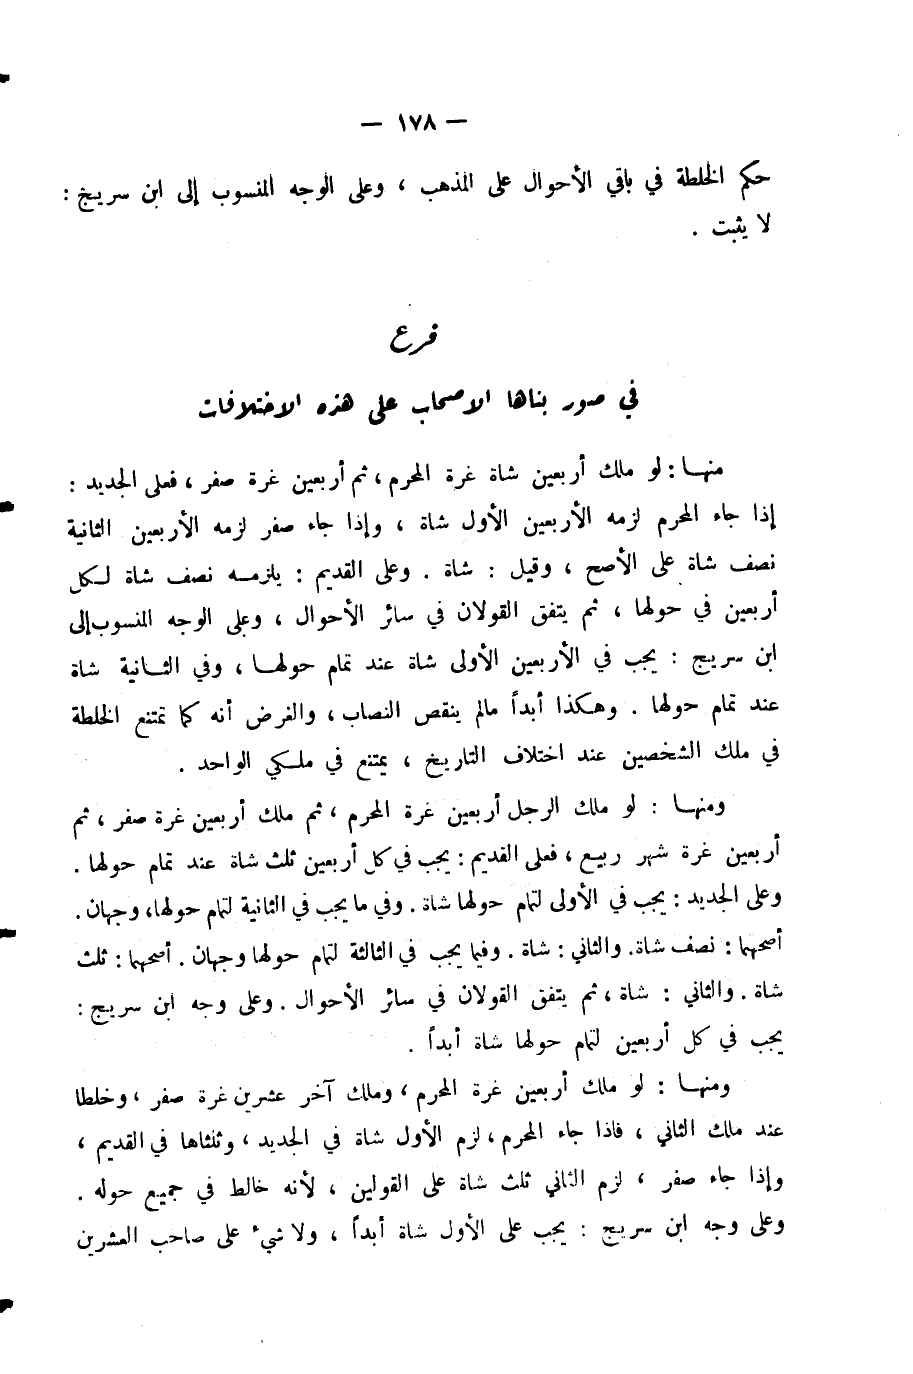 — ١٧٨ —
حكم الخلطة في باقي الأحوال على المذهب ، وعلى الوجه المنسوب إلى ابن سريج :
لا يثبت .
فرع
في صور بناها الاصحاب على هذه الاختلافات
منها : لو ملك أربعين شاة غرة المحرم ، ثم أربعين غرة صفر ، فعلى الجديد :
إذا جاء المحرم لزمه الأربعين الأول شاة ، وإذا جاء صفر لزمه الأربعين الثانية
نصف شاة على الأصح ، وقيل : شاة . وعلى القديم : يلزمه نصف شاة لكل
أربعين في حولها ، ثم يتفق القولان في سائر الأحوال ، وعلى الوجه المنسوب إلى
ابن سريج : يجب في الأربعين الأولى شاة عند تمام حولها ، وفي الثانية شاة
عند تمام حولها . وهكذا أبداً مالم ينقص النصاب ، والغرض أنه كما تمتنع الخلطة
في ملك الشخصين عند اختلاف التاريخ ، يمتنع في ملكي الواحد .
ومنها : لو ملك الرجل أربعين غرة المحرم ، ثم ملك أربعين غرة صفر ، ثم
أربعين غرة شهر ربيع ، فعلى القديم : يجب في كل أربعين ثلث شاة عند تمام حولها .
وعلى الجديد : يجب في الأولى لتمام حولها شاة . وفي ما يجب في الثانية لتمام حولها ، وجهان .
أصحهما : نصف شاة . والثاني : شاة . وفيما يجب في الثالثة لتمام حولها وجهان . أصحهما : ثلث
شاة . والثاني : شاة ، ثم يتفق القولان في سائر الأحوال . وعلى وجه ابن سريج :
يجب في كل أربعين لتمام حولها شاة أبداً .
ومنها : لو ملك أربعين غرة المحرم ، وملك آخر عشرين غرة صفر ، وخلطا
عند ملك الثاني ، فاذا جاء المحرم ، لزم الأول شاة في الجديد ، وثلثاها في القديم ،
وإذا جاء صفر ، لزم الثاني ثلث شاة على القولين ، لأنه خالط في جميع حوله .
وعلى وجه ابن سريج : يجب على الأول شاة أبداً ، ولا شيء على صاحب العشرين